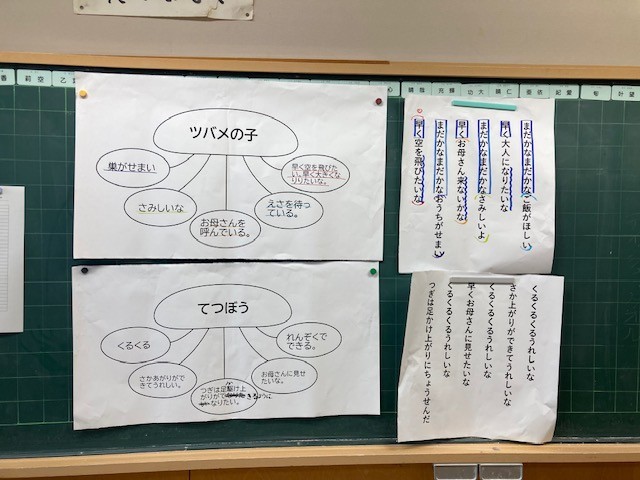 ツバメの子
巣がせまい
さみしいな
お母さんを
呼んでいる。
えさを待っ
ている。
早く空を飛びた
い。早く大きくな
りたいな。
てつぼう
くるくる
さかあがりがで
きてうれしい。
つぎは足駆け上
がりがで
きるように
なりたい。
お母さんに見せ
たいな。
れんぞくで
できる。
まだかなまだかなご飯がほしい
早く大人になりたいな
まだかなまだかなさみしいよ
早くお母さん来ないかな
まだかなまだかなおうちがせまい
早く空を飛びたいな
くるくるくるうれしいな
さか上がりができてうれしいな
くるくるくるうれしいな
早くお母さんに見せたいな
くるくるくるうれしいな
つぎは足かけ上がりにちょうせんだ